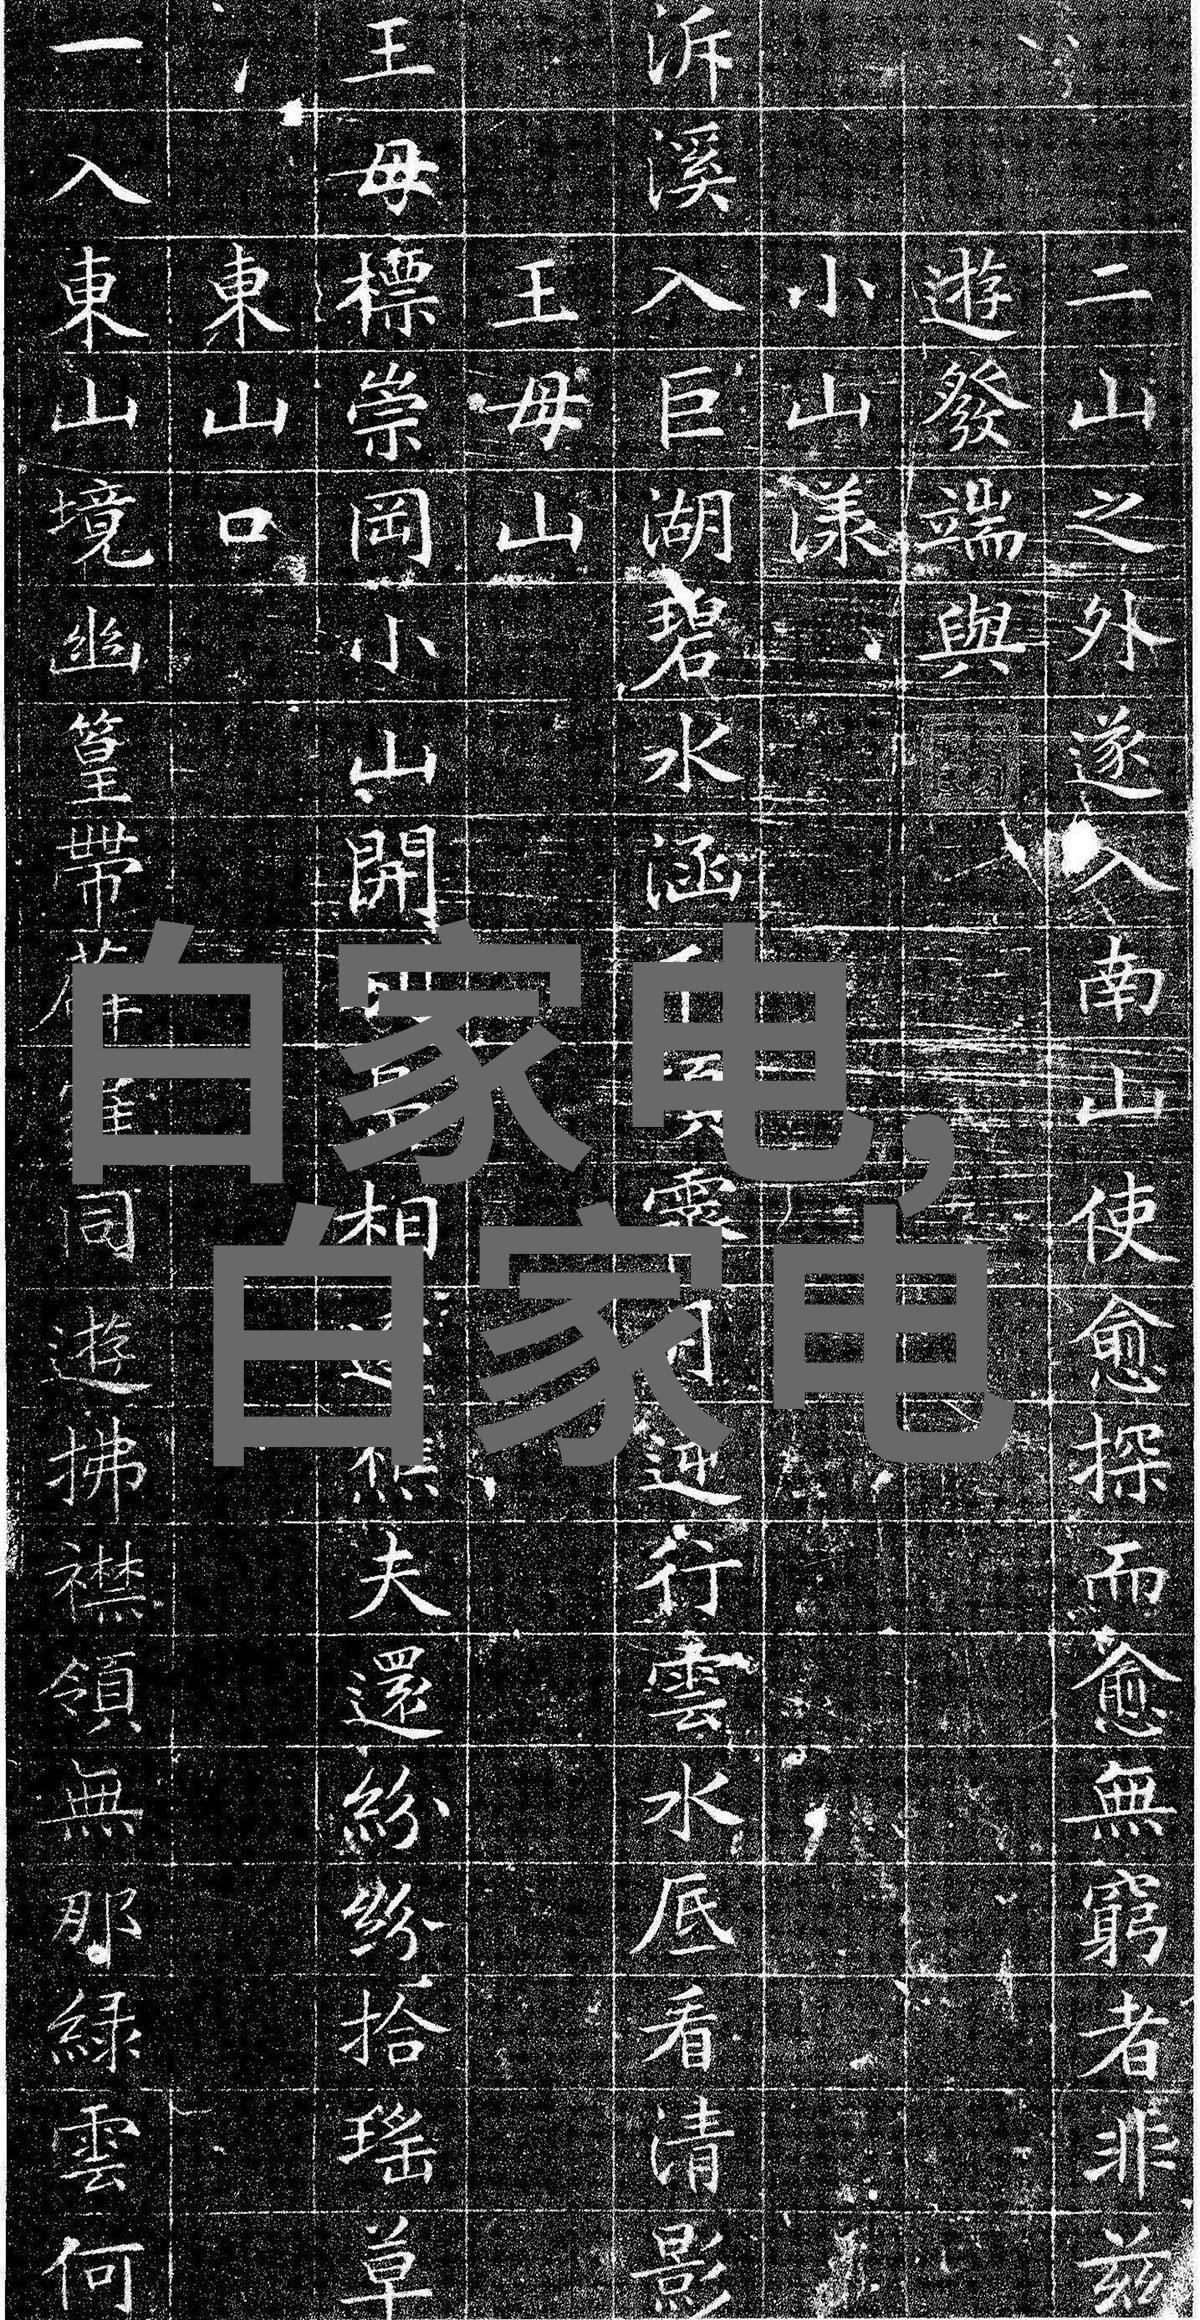 二山之外遂入南山使愈探而愈無窮者非茲
遊發端與
小山漾
泝溪入巨湖碧水涵千頃雲月逆行雲水底看清影
王母山
王母標崇岡小山開相夫還紛紛拾瑤草
東山口
一入東山境幽篁帶薜同遊拂襟領無那緑雲何
白家电,
白家电